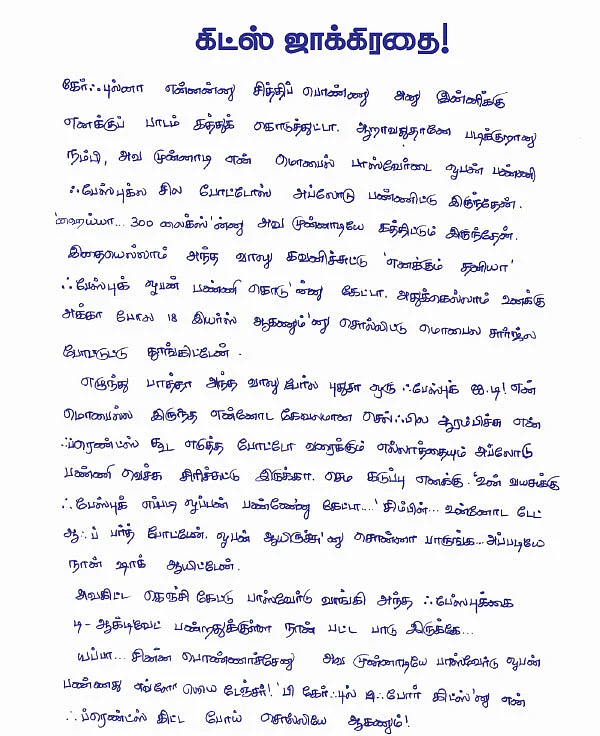 கிட்ஸ் ஜாக்கிரதை!
கேர்ஃபுல்னா என்னன்னு சித்திப் பொண்ணு அனு இன்னிக்கு
எனக்குப் பாடம் கத்துக் கொடுத்துட்டா. ஆறாவதுதானே படிக்குறானு
நம்பி, அவ முன்னாடி என் மொபைல் பாஸ்வேர்டை ஓபன் பண்ணி
ஃபேஸ்புக்ல சில போட்டோஸ் அப்லோடு பண்ணிட்டு இருந்தேன்.
'ஹைய்யா... 300 லைக்ஸ்'ன்னு அவ முன்னாடியே கத்திட்டும் இருந்தேன்.
இதையெல்லாம் அந்த வாலு கவனிச்சுட்டு 'எனக்கும் தனியா'
ஃபேஸ்புக் ஓபன் பண்ணி கொடு'ன்னு கேட்டா. அதுக்கெல்லாம் உனக்கு
அக்கா போல 18 இயர்ஸ் ஆகணும்'னு சொல்லிட்டு மொபைல சார்ஜ்ல
போட்டுட்டு தூங்கிட்டேன்.
எழுந்து பாத்தா அந்த வாலு பேர்ல புதுசா ஒரு ஃபேஸ்புக் ஐ.டி! என்
மொபைல்ல இருந்த என்னோட கேவலமான செல்ஃபில ஆரம்பிச்சு என்
ஃப்ரெண்ட்ஸ் கூட எடுத்த போட்டோ வரைக்கும் எல்லாத்தையும் அப்லோடு
பண்ணி வெச்சு சிரிச்சுட்டு இருக்கா. செம கடுப்பு எனக்கு. 'உன் வயசுக்கு
ஃபேஸ்புக் எப்படி ஓப்பன் பண்ணேனு கேட்டா...' சிம்பிள்... உன்னோட டேட்
ஆஃப் பர்த் போட்டேன். ஓபன் ஆயிருச்சு'னு சொன்னா பாருங்க... அப்படியே
நான் ஷாக் ஆயிட்டேன்.
அவகிட்ட கெஞ்சி கேட்டு பாஸ்வேர்டு வாங்கி அந்த ஃபேஸ்புக்கை
டி-ஆக்டிவேட் பண்றதுக்குள்ள நான் பட்ட பாடு இருக்கே...
யப்பா... சின்ன பொண்ணாச்சேனு அவ முன்னாடியே பாஸ்வேர்டு ஓபன்
பண்ணது எவ்ளோ பெரிய டேஞ்சர்! 'பி கேர்ஃபுல் ஆஃபோர் கிட்ஸ்'னு என்
ஃப்ரெண்ட்ஸ் கிட்ட போய் சொல்லியே ஆகணும்!